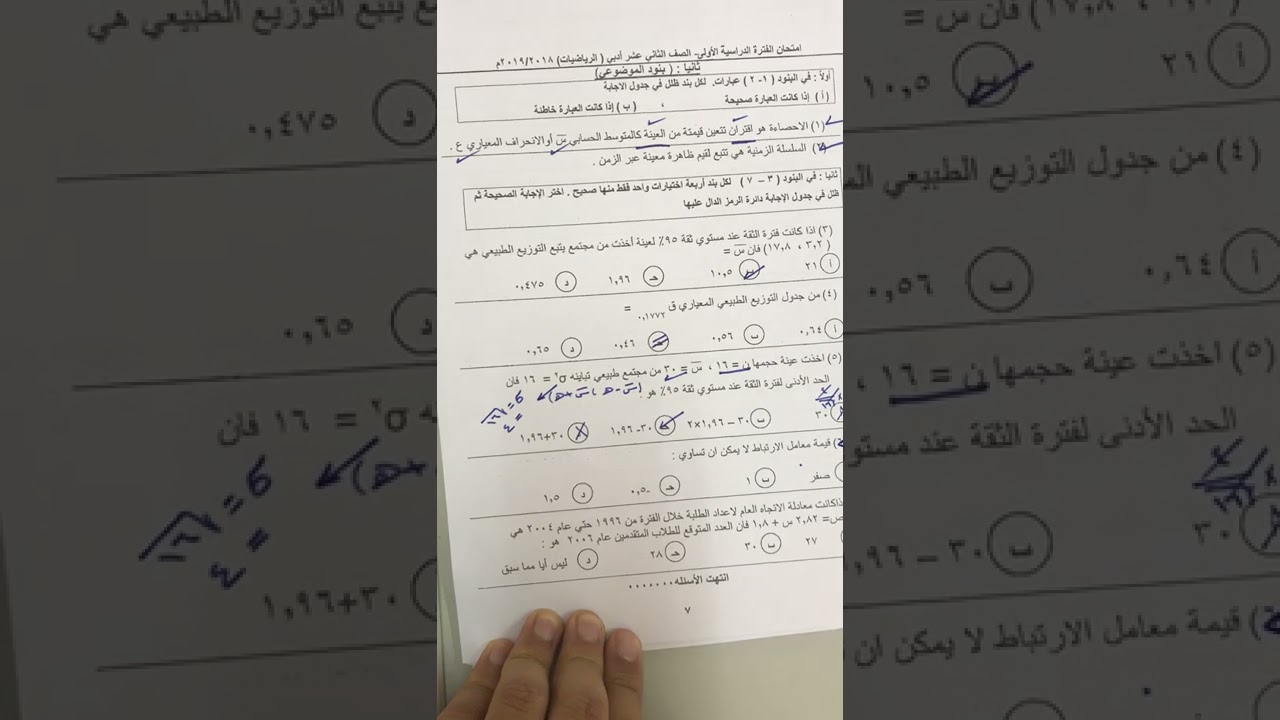 امتحان الفترة الدراسية الأولى- الصف الثاني عشر أدبي ( الرياضيات) ٢٠١٩/٢٠١٨م
ثانيا : ( بنود الموضوعي)
أولاً : في البنود ( ١- ٢ ) عبارات. لكل بند ظلل في جدول الاجابة
( أ ) إذا كانت العبارة صحيحة ، ( ب ) إذا كانت العبارة خاطئة
(١) الاحصاءة هو اقتران تتعين قيمتة من العينة كالمتوسط الحسابي س̅ أوالانحراف المعياري ع .
السلسلة الزمنية هي تتبع لقيم ظاهرة معينة عبر الزمن .
ثانيا : في البنود ( ٣ – ٧ ) لكل بند أربعة اختيارات واحد فقط منها صحيح . اختر الإجابة الصحيحة ثم
ظلل في جدول الإجابة دائرة الرمز الدال عليها
(٣) اذا كانت فترة الثقة عند مستوي ثقة ٩٥٪ لعينة أخذت من مجتمع يتبع التوزيع الطبيعي هي
( ٣,٢ ، ١٧,٨) فان س̅ =
أ ٢١ ب ١٠,٥ حـ ١,٩٦ د ٠,٤٧٥
(٤) من جدول التوزيع الطبيعي المعياري ق ٠,١٧٧٢ =
أ ٠,٦٤ ب ٠,٥٦ حـ ٠,٤٦ د ٠,٦٥
(٥) اخذت عينة حجمها ن = ١٦ ، س̅ = ٣٠ من مجتمع طبيعي تباينه σ٢ = ١٦ فان
الحد الأدنى لفترة الثقة عند مستوي ثقة ٩٥٪ هو (س̅ - ھ ، س̅ + ھ)
σ = √١٦
= ٤
٣٠ ب ٣٠ – ١,٩٦×٢ حـ ٣٠- ١,٩٦ د ٣٠+١,٩٦
) قيمة معامل الارتباط لا يمكن ان تساوي :
صفر ب ١ حـ -٠,٥ د ١,٥
ذاكانت معادلة الاتجاه العام لاعداد الطلبة خلال الفترة من ١٩٩٦ حتي عام ٢٠٠٤ هي
ص= ٢,٨٢ س + ١,٨ فان العدد المتوقع للطلاب المتقدمين عام ٢٠٠٦ هو :
٢٧ ب ٣٠ حـ ٢٨ د ليس أيا مما سبق
انتهت الأسئله.......
٧